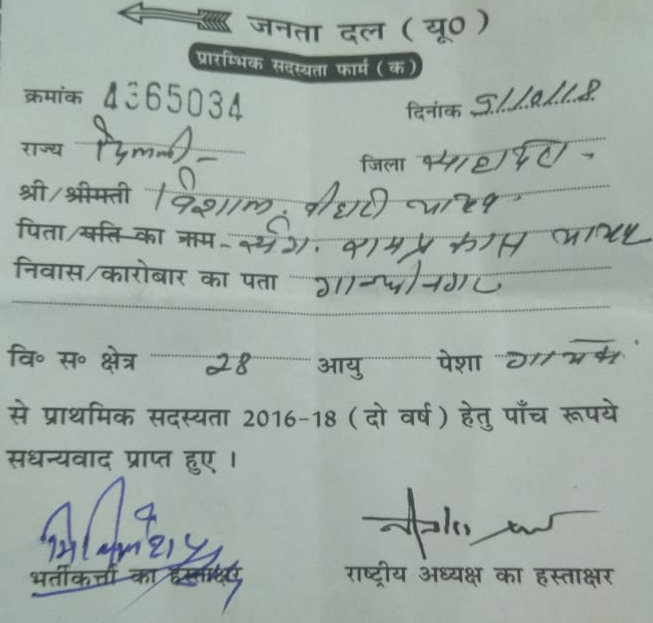 जनता दल (यू०)
प्रारम्भिक सदस्यता फार्म (क)
क्रमांक 4365034 दिनांक 5/10/18
राज्य दिल्ली - जिला
श्री/श्रीमती विशाल बिहारी यादव
पिता/पति का नाम - स्व. रामप्रकाश यादव
निवास/कारोबार का पता गान्धीनगर
वि० स० क्षेत्र 28 आयु पेशा गायक
से प्राथमिक सदस्यता 2016-18 (दो वर्ष) हेतु पाँच रूपये
सधन्यवाद प्राप्त हुए ।
भर्तीकर्त्ता का हस्ताक्षर राष्ट्रीय अध्यक्ष का हस्ताक्षर